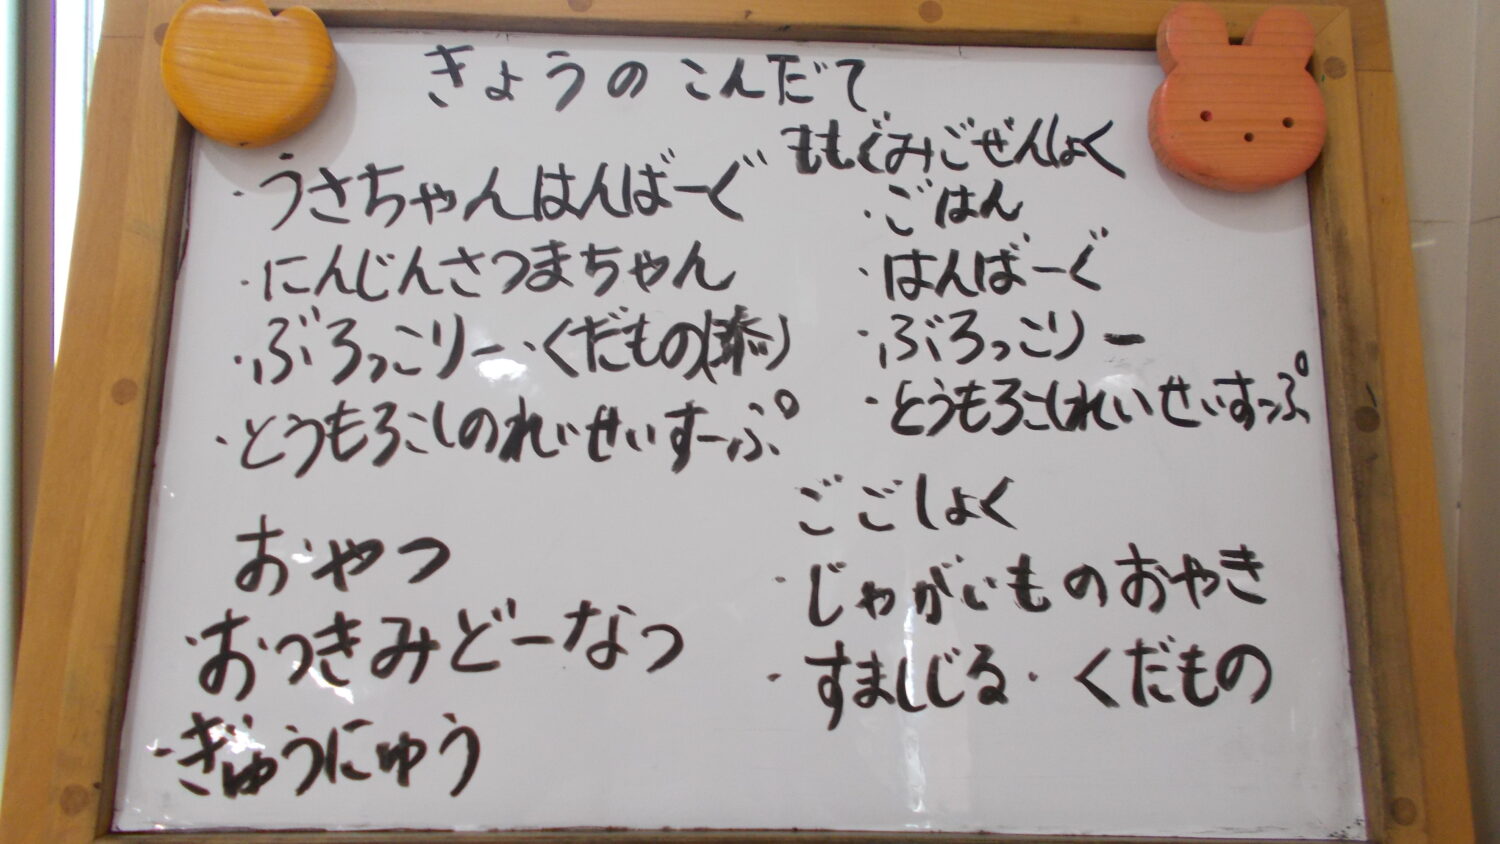 きょうのこんだて
・うさちゃんはんばーぐ
・にんじんさつまちゃん
・ぶろっこりー・くだもの()
・とうもろこしのれいせいすーぷ
おやつ
・おつきみどーなつ
・ぎゅうにゅう
ももぐみごぜんしょく
・ごはん
・はんばーぐ
・ぶろっこりー
・とうもろこしれいせいすーぷ
ごごしょく
・じゃがいものおやき
・すましじる・くだもの